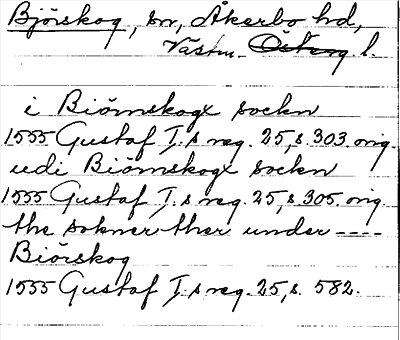 Björskog, sn, Åkerbo hd,
Västm. Österg l.
i Biörnskogx sockn
1555 Gustaf I:s reg. 25, s. 303 orig.
udi Biörnskogx sockn
1555 Gustaf I:s reg. 25, s. 305. orig.
the sokner ther under ----
Biörskog
1555 Gustaf I:s reg. 25, s. 582.